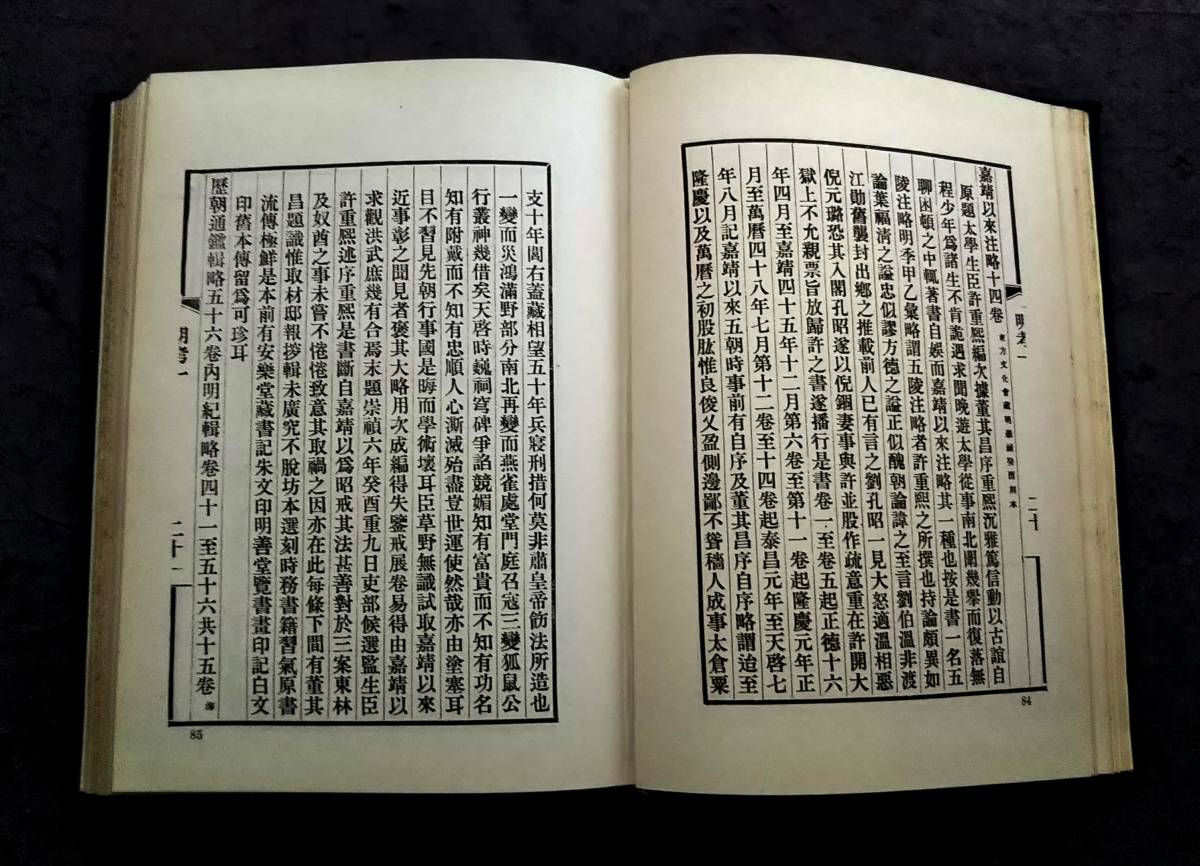 嘉靖以來注略十四卷 東方文化會藏明崇禎癸酉刻本
原題太學生臣許重熙編次據董其昌序重熙沉雅篤信動以古誼自
程少年爲諸生不肯詭遇求聞晚遊太學從事南北闈幾舉而復落無
聊困頓之中輒著書自娛而嘉靖以來注略其一種也按是書一名五
陵注略明季甲乙彙略謂五陵注略者許重熙之所撰也持論頗異如
論葉福清之謚忠似謬方德之謚正似醜朝論諱之至言劉伯溫非渡
江勛舊襲封出鄉之推載前人已有言之劉孔昭一見大怒適溫相惡
倪元璐恐其入閣孔昭遂以倪錮妻事與許並股作疏意重在許開大
獄上不允親票旨放歸許之書遂播行是書卷一至卷五起正德十六
年四月至嘉靖四十五年十二月第六卷至第十一卷起隆慶元年正
月至萬曆四十八年七月第十二卷至十四卷起泰昌元年至天啓七
年八月記嘉靖以來五朝時事前有自序及董其昌序自序略謂迨至
隆慶以及萬曆之初股肱惟良俊乂盈側邊鄙不聳穡人成事太倉粟
明考一
二十
84
支十年閭右蓋藏相望五十年兵寢刑措何莫非肅皇帝飭法所造也
一變而災鴻滿野部分南北再變而燕雀處堂門庭召寇三變狐鼠公
行叢神幾借矣天啓時巍祠穹碑爭諂競媚知有富貴而不知有功名
知有附戴而不知有忠順人心澌滅殆盡豈世運使然哉亦由塗塞耳
目不習見先朝行事國是晦而學術壞耳臣草野無識試取嘉靖以來
近事彰之聞見者褒其大略用次成編得失鑒戒展卷易得由嘉靖以
求觀洪武庶幾有合焉末題崇禎六年癸酉重九日吏部候選監生臣
許重熙述序重熙是書斷自嘉靖以爲昭戒其法甚善對於三案東林
及奴酋之事未嘗不倦倦致意其取禍之因亦在此每條下間有董其
昌題識惟取材邸報摉輯未廣究不脫坊本選刻時務書籍習氣原書
流傳極鮮是本前有安樂堂藏書記朱文印明善堂覽書畫印記白文
印舊本傳留爲可珍耳
歷朝通鑑輯略五十六卷內明紀輯略卷四十一至五十六共十五卷
明考一
二十一
85